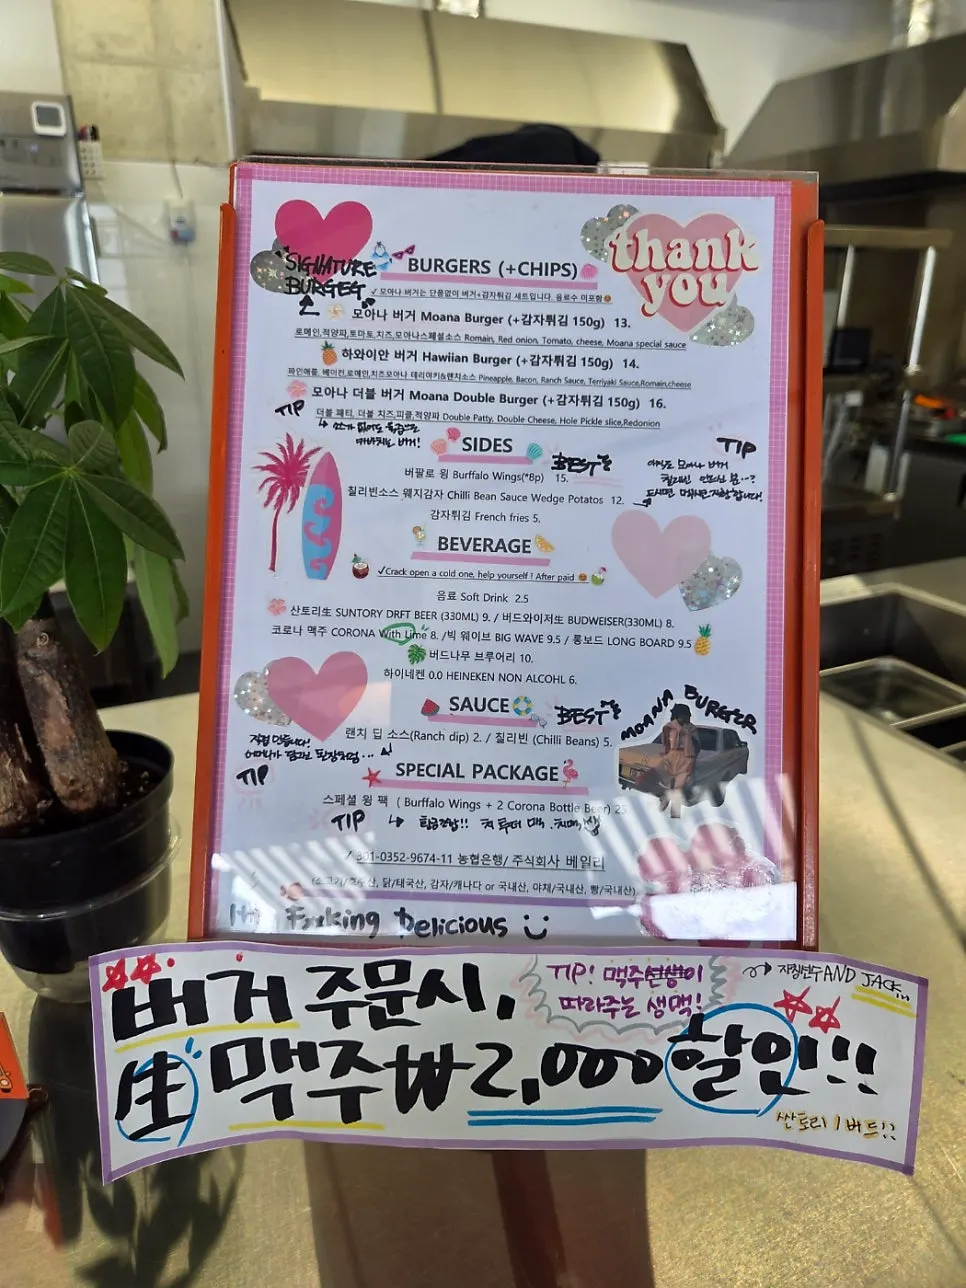 SIGNATURE
BURGEG
BURGERS (+CHIPS)
thank
you
✓ 모아나 버거는 단품없이 버거+감자튀김 세트입니다. 음료수 미포함
모아나 버거 Moana Burger (+감자튀김 150g) 13.
로메인,적양파,토마토,치즈,모아나스페셜소스 Romain, Red onion, Tomato, cheese, Moana special sauce
하와이안 버거 Hawiian Burger (+감자튀김 150g) 14.
파인애플, 베이컨,로메인,치즈모아나 데리야키&랜치소스 Pineapple, Bacon, Ranch Sauce, Terriyaki Sauce,Romain,cheese
모아나 더블 버거 Moana Double Burger (+감자튀김 150g) 16.
TIP
더블 패티, 더블 치즈,피클,적양파 Double Patty, Double Cheese, Hole Pickle slice,Redonion
버거!
SIDES
BEST
TIP
버팔로 윙 Burffalo Wings(*8p) 15.
아직도 모아나 버거
칠리빈소스 웨지감자 Chilli Bean Sauce Wedge Potatos 12.
감자튀김 French fries 5.
BEVERAGE
✓Crack open a cold one, help yourself ! After paid
음료 Soft Drink 2.5
산토리生 SUNTORY DRFT BEER (330ML) 9. / 버드와이저生 BUDWEISER(330ML) 8.
코로나 맥주 CORONA With Lime 8. /빅 웨이브 BIG WAVE 9.5 / 롱보드 LONG BOARD 9.5
버드나무 브루어리 10.
하이네켄 0.0 HEINEKEN NON ALCOHL 6.
SAUCE
BEST
MOANA BURGER
랜치 딥 소스(Ranch dip) 2. / 칠리빈 (Chilli Beans) 5.
직접 만듭니다!
TIP
SPECIAL PACKAGE
스페셜 윙 팩 ( Burffalo Wings + 2 Corona Bottle Beer) 25
TIP
301-0352-9674-11 농협은행/ 주식회사 베일리
(소고기/호주산, 닭/태국산, 감자/캐나다 or 국내산, 야채/국내산, 빵/국내산)
It's F*cking Delicious
버거 주문시,
TIP! 맥주선생이
따라주는 생맥!
AND JACK...
生 맥주 ₩2,000 할인!!
싼토리 / 버드!!